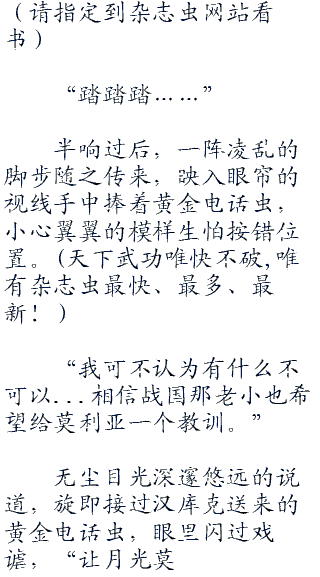 （请指定到杂志虫网站看
书）
“踏踏踏……”
半响过后，一阵凌乱的
脚步随之传来，映入眼帘的
视线手中捧着黄金电话虫，
小心翼翼的模样生怕按错位
置。(天下武功唯快不破,唯
有杂志虫最快、最多、最
新！)
“我可不认为有什么不
可以...相信战国那老小也希
望给莫利亚一个教训。”
无尘目光深邃悠远的说
道，旋即接过汉库克送来的
黄金电话虫，眼里闪过戏
谑，“让月光莫